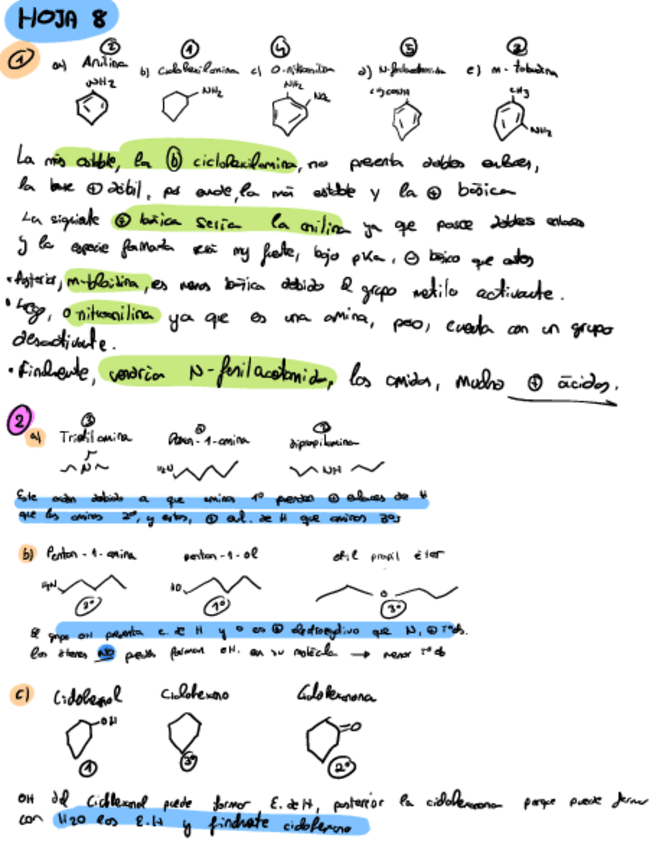 HOJA 8
① ③ ① ④ ⑤ ②
a) Anilina b) Ciclohexilamina c) O-nitroanilina d) N-fenilacetamida e) m-toluidina
NH2 NH2 NH2 NO2 CH3CONH CH3 NH2
La más estable, la ⓑ ciclohexilamina, no presenta dobles enlaces,
la base ⊕ débil, por ende, la más estable y la ⊕ básica
La siguiente ⊕ básica sería la anilina ya que posee dobles enlaces
y la especie formada será muy fuerte, bajo pKa, ⊖ básico que
• Posterior, m-toluidina, es menos básica debido al grupo metilo activante.
• Luego, o nitroanilina ya que es una amina, pero, cuenta con un grupo
desactivante.
• Finalmente, vendría N-fenilacetamida, las amidas, mucho ⊕ ácidas.
②
a) Trietilamina ③ 1-amina dipropilamina
N H2N NH
Este orden debido a que aminas 1º presentan ⊕ enlaces de H
que las aminas 2º, y estas, ⊕ enl. de H que aminas 3as
b) Pentan-1-amina pentan-1-ol etil propil éter
H2N HO O
2º 1º 3º
El grupo OH presenta e. de H y O es ⊕ electronegativo que N, ⊕ Tªeb.
los éteres NO pueden formar eH. en su molécula → menor Tªeb
c) Ciclohexanol Ciclohexano Ciclohexanona
OH O
1 3º 2º
OH del Ciclohexanol puede formar E. de H, posterior la ciclohexanona porque puede formar
con H2O los E.H y finalmente ciclohexano